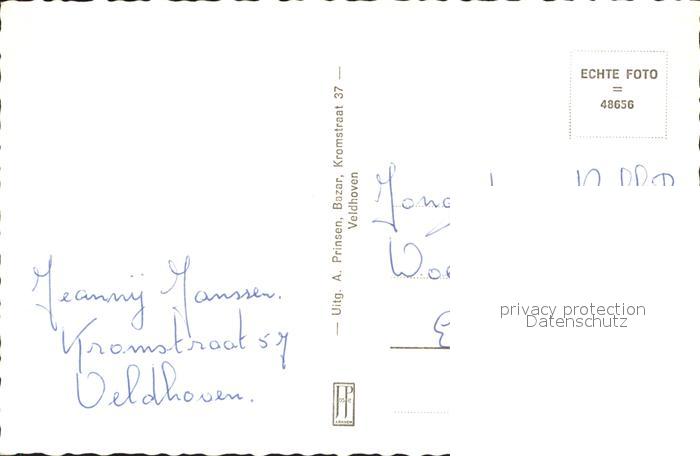 ECHTE FOTO
=
48656
— Uitg. A. Prinsen, Bazar, Kromstraat 37 —
Veldhoven
Jeannij Janssen.
Kromstraat 57
Veldhoven.
privacy protection
Datenschutz